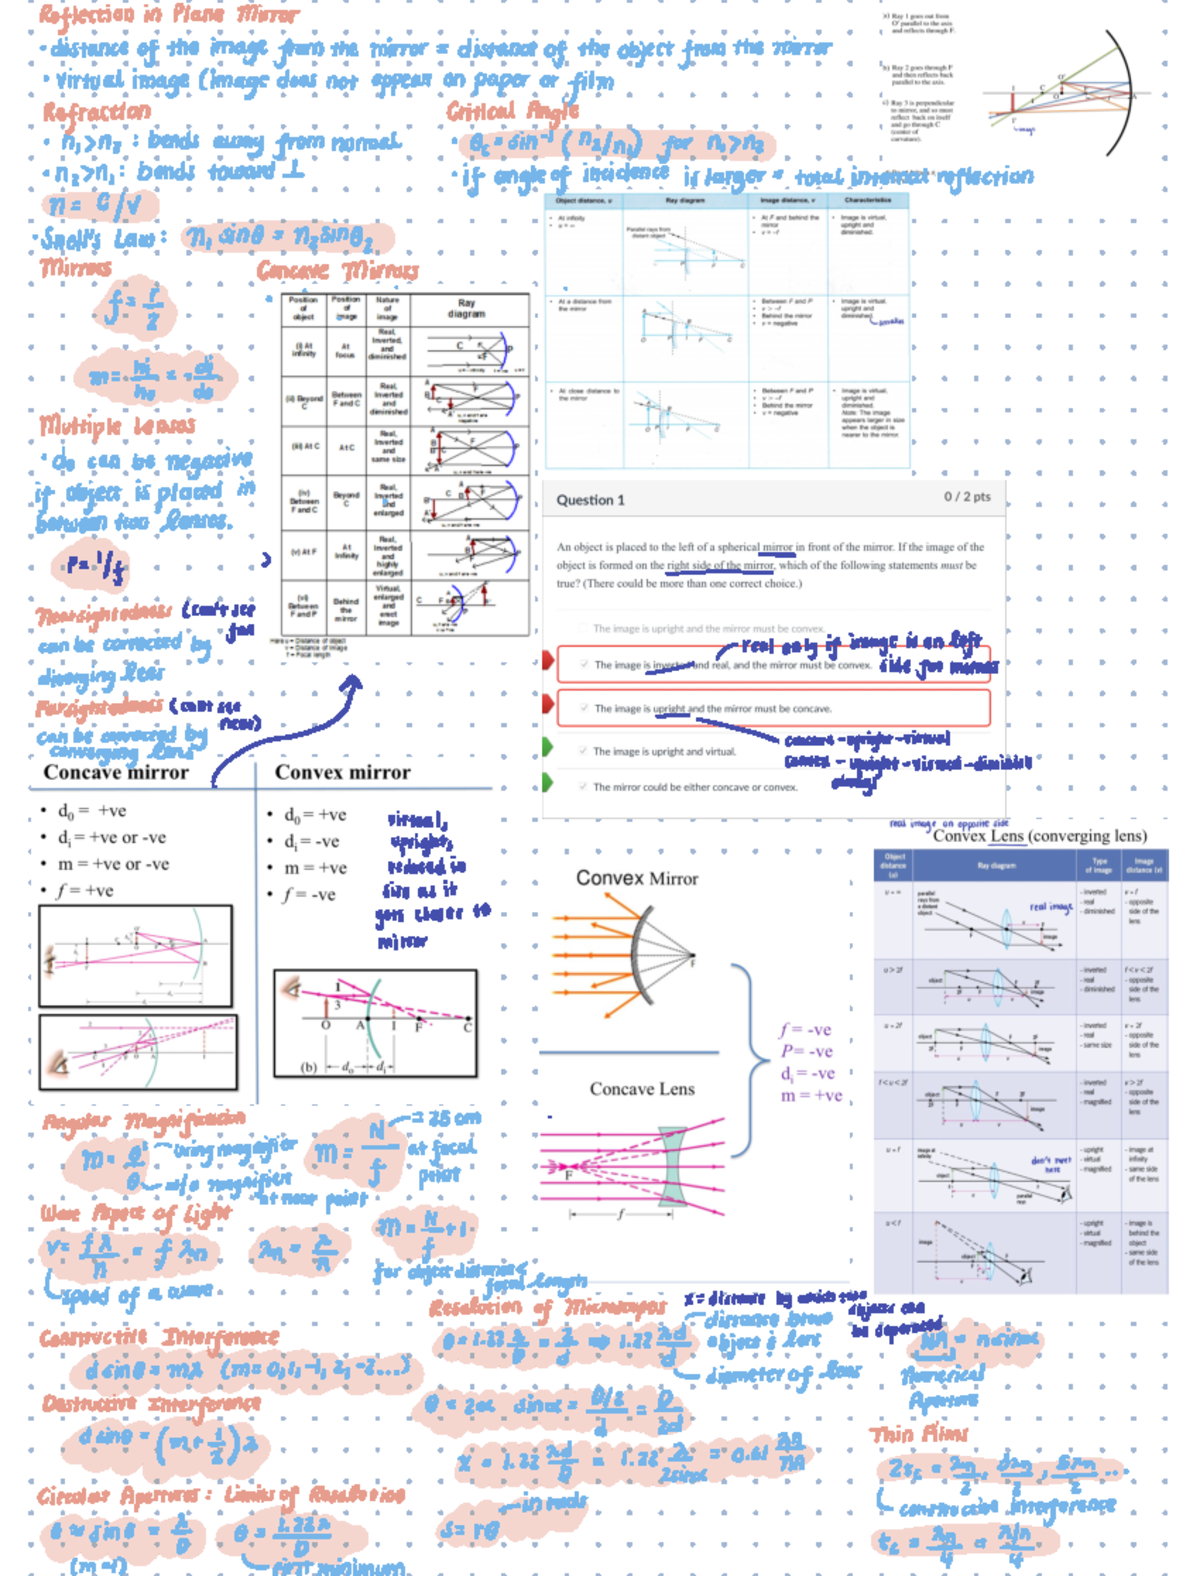 Reflection in Plane Mirror
• distance of the image from the mirror = distance of the object from the mirror
• Virtual image (image does not appear on paper or film
a) Ray 1 goes out from
O' parallel to the axis
and reflects through F.
b) Ray 2 goes through F
and then reflects back
parallel to the axis.
c) Ray 3 is perpendicular
to mirror, and so must
reflect back on itself
and go through C
(center of
curvature).
Refraction
• n₁>n₂ : bends away from normal
• n₂>n₁: bends toward ⊥
n = c/v
• Snell's Law: n₁ sinθ = n₂ sinθ₂
Critical Angle
• θc = sin⁻¹ (n₂/n₁) for n₁>n₂
• if angle of incidence is larger = total internal reflection
Object distance, u
Ray diagram
Image distance, v
Characteristics
• At infinity
Parallel rays from
distant object
• At F and behind the
mirror
• Image is virtual,
upright and
diminished.
• At a distance from
the mirror
• Between F and P
• Behind the mirror
• v = negative
• Image is virtual,
upright and
diminished.
• At close distance to
the mirror
• Between F and P
• Behind the mirror
• v = negative
• Image is virtual,
upright and
diminished.
Note: The image
appears larger in size
when the object is
nearer to the mirror.
Mirrors
f = r/2
m = hi/ho = -di/do
Concave Mirrors
Position of object
Position of image
Nature of image
Ray diagram
(i) At infinity
At focus
Real, Inverted, and diminished
(ii) Beyond C
Between F and C
Real, Inverted and diminished
(iii) At C
At C
Real, Inverted and same size
(iv) Between F and C
Beyond C
Real, Inverted and enlarged
(v) At F
At Infinity
Real, Inverted and highly enlarged
(vi) Between F and P
Behind the mirror
Virtual, enlarged and erect image
Multiple Lenses
• do can be negative
if object is placed in
between two lenses.
P = 1/f
Nearsightedness (can't see
far
can be corrected by
diverging lens
Farsightedness (cant see
near)
can be corrected by
converging lens
Question 1
0 / 2 pts
An object is placed to the left of a spherical mirror in front of the mirror. If the image of the
object is formed on the right side of the mirror, which of the following statements must be
true? (There could be more than one correct choice.)
The image is upright and the mirror must be convex.
real only if image is on left
side for mirrors
The image is inverted and real, and the mirror must be convex.
The image is upright and the mirror must be concave.
concave - upright - virtual
convex - upright - virtual - diminish
The image is upright and virtual.
The mirror could be either concave or convex.
Concave mirror
• d₀ = +ve
• dᵢ = +ve or -ve
• m = +ve or -ve
• f = +ve
Convex mirror
• d₀ = +ve
• dᵢ = -ve
• m = +ve
• f = -ve
virtual,
upright,
reduced in
size as it
gets closer to
mirror
1
3
O A I F C
(b)
d₀ dᵢ
Convex Mirror
F
Concave Lens
F
f
f = -ve
P= -ve
dᵢ = -ve
m = +ve
real image on opposite side
Convex Lens (converging lens)
Object distance (u)
Ray diagram
Type of image
Image distance (v)
u = ∞
parallel rays from a distant object
real image
- inverted
- real
- diminished
v = f
- opposite side of the lens
u > 2f
- inverted
- real
- diminished
f < v < 2f
- opposite side of the lens
u = 2f
- inverted
- real
- same size
v = 2f
- opposite side of the lens
f < u < 2f
- inverted
- real
- magnified
v > 2f
- opposite side of the lens
u = f
don't meet
here
- upright
- virtual
- magnified
- image at infinity
- same side of the lens
u < f
- upright
- virtual
- magnified
- image is behind the object
- same side of the lens
Angular Magnification
m = θ'/θ
using magnifier
w/o magnifier
at near point
m = N/f
= 25 cm
at focal
point
m = N/f + 1
for object distance
focal length
Wave Aspect of Light
v = fλ/n = fλn
λn = λ/n
speed of a wave
Constructive Interference
d sinθ = mλ (m = 0, 1, -1, 2, -2...)
Destructive Interference
d sinθ = (m + 1/2) λ
Circular Apertures: Limits of Resolution
θ ≈ sinθ = λ/D
(m=1)
θ = 1.22λ/D
first minimum
Resolution of Microscopes
θ = 1.22 λ/D = x/d ⇒ 1.22 λd/D
distance btwn
object & lens
diameter of lens
objects can
be separated
θ = 2α sinα = D/2/d = D/2d
x = 1.22 λd/D = 1.22 λ/2sinα = 0.61 λn/NA
in rads
s = rθ
NA = n sinα
Numerical
Aperture
Thin Films
2t = λn/2, 3λn/2, 5λn/2 ...
constructive interference
t = λn/4 = λ/n/4